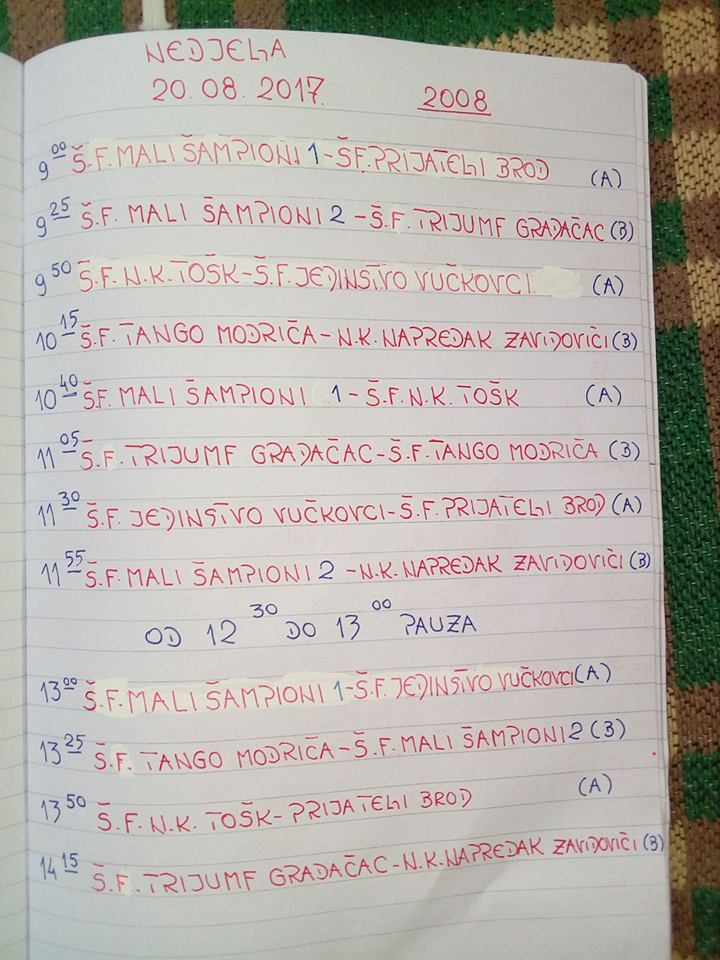 NEDJELJA
20.08.2017. 2008
9 00 Š.F. MALI ŠAMPIONI 1-ŠF.PRIJATELJI BROD (A)
9 25 Š.F. MALI ŠAMPIONI 2 -Š.F. TRIJUMF GRADAČAC (B)
9 50 Š.F. N.K. TOŠK-Š.F. JEDINSTVO VUČKOVCI (A)
10 15 Š.F. TANGO MODRIČA-N.K. NAPREDAK ZAVIDOVIČI (B)
10 40 Š.F. MALI ŠAMPIONI 1 - Š.F. N.K. TOŠK (A)
11 05 Š.F. TRIJUMF GRADAČAC-Š.F. TANGO MODRIČA (B)
11 30 Š.F. JEDINSTVO VUČKOVCI-Š.F. PRIJATELJI BROD (A)
11 55 Š.F. MALI ŠAMPIONI 2 -N.K. NAPREDAK ZAVIDOVIČI (B)
OD 12 30 DO 13 00 PAUZA
13 00 Š.F. MALI ŠAMPIONI 1-Š.F. JEDINSTVO VUČKOVCI (A)
13 25 Š.F. TANGO MODRIČA-Š.F. MALI ŠAMPIONI 2 (B)
13 50 Š.F. N.K. TOŠK- PRIJATELJI BROD (A)
14 15 Š.F. TRIJUMF GRADAČAC-N.K. NAPREDAK ZAVIDOVIČI (B)